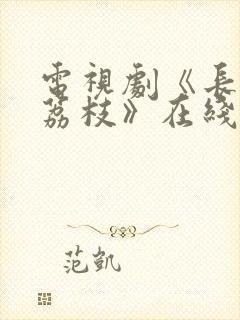 電視劇《長
荔枝》在綫
范凱